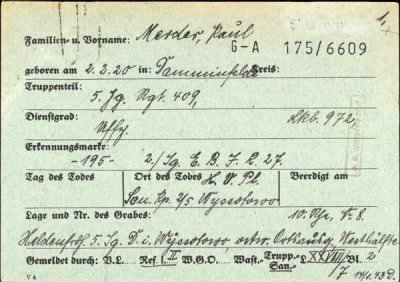 1.
Familien- u. Vorname: Merder, Paul
G-A 175/6609
geboren am 2.2.20 in: Tamminfelde Kreis:
Truppenteil:
5. Jg. Rgt. 409,
Dienstgrad: Lkb. 972,
Uffz.
Erkennungsmarke:
-195- 2./Jg. E. B. 27.
Tag des Todes Ort des Todes H. V. Pl. Beerdigt am
San. Kp. 2/5 Wyssotowo
Lage und Nr. des Grabes: 10. Rhe, Nr. 8.
Heldenfrdf. 5. Jg. D. i. Wyssotowo, Westhälfte
Gemeldet durch: V.L. Ref. I II W.G.O. Wast.- Trupp.- San.- L XXVIII/ Bl. 2
V 4 /7